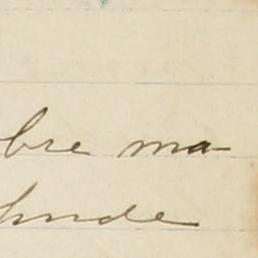 bre ma-
hnde